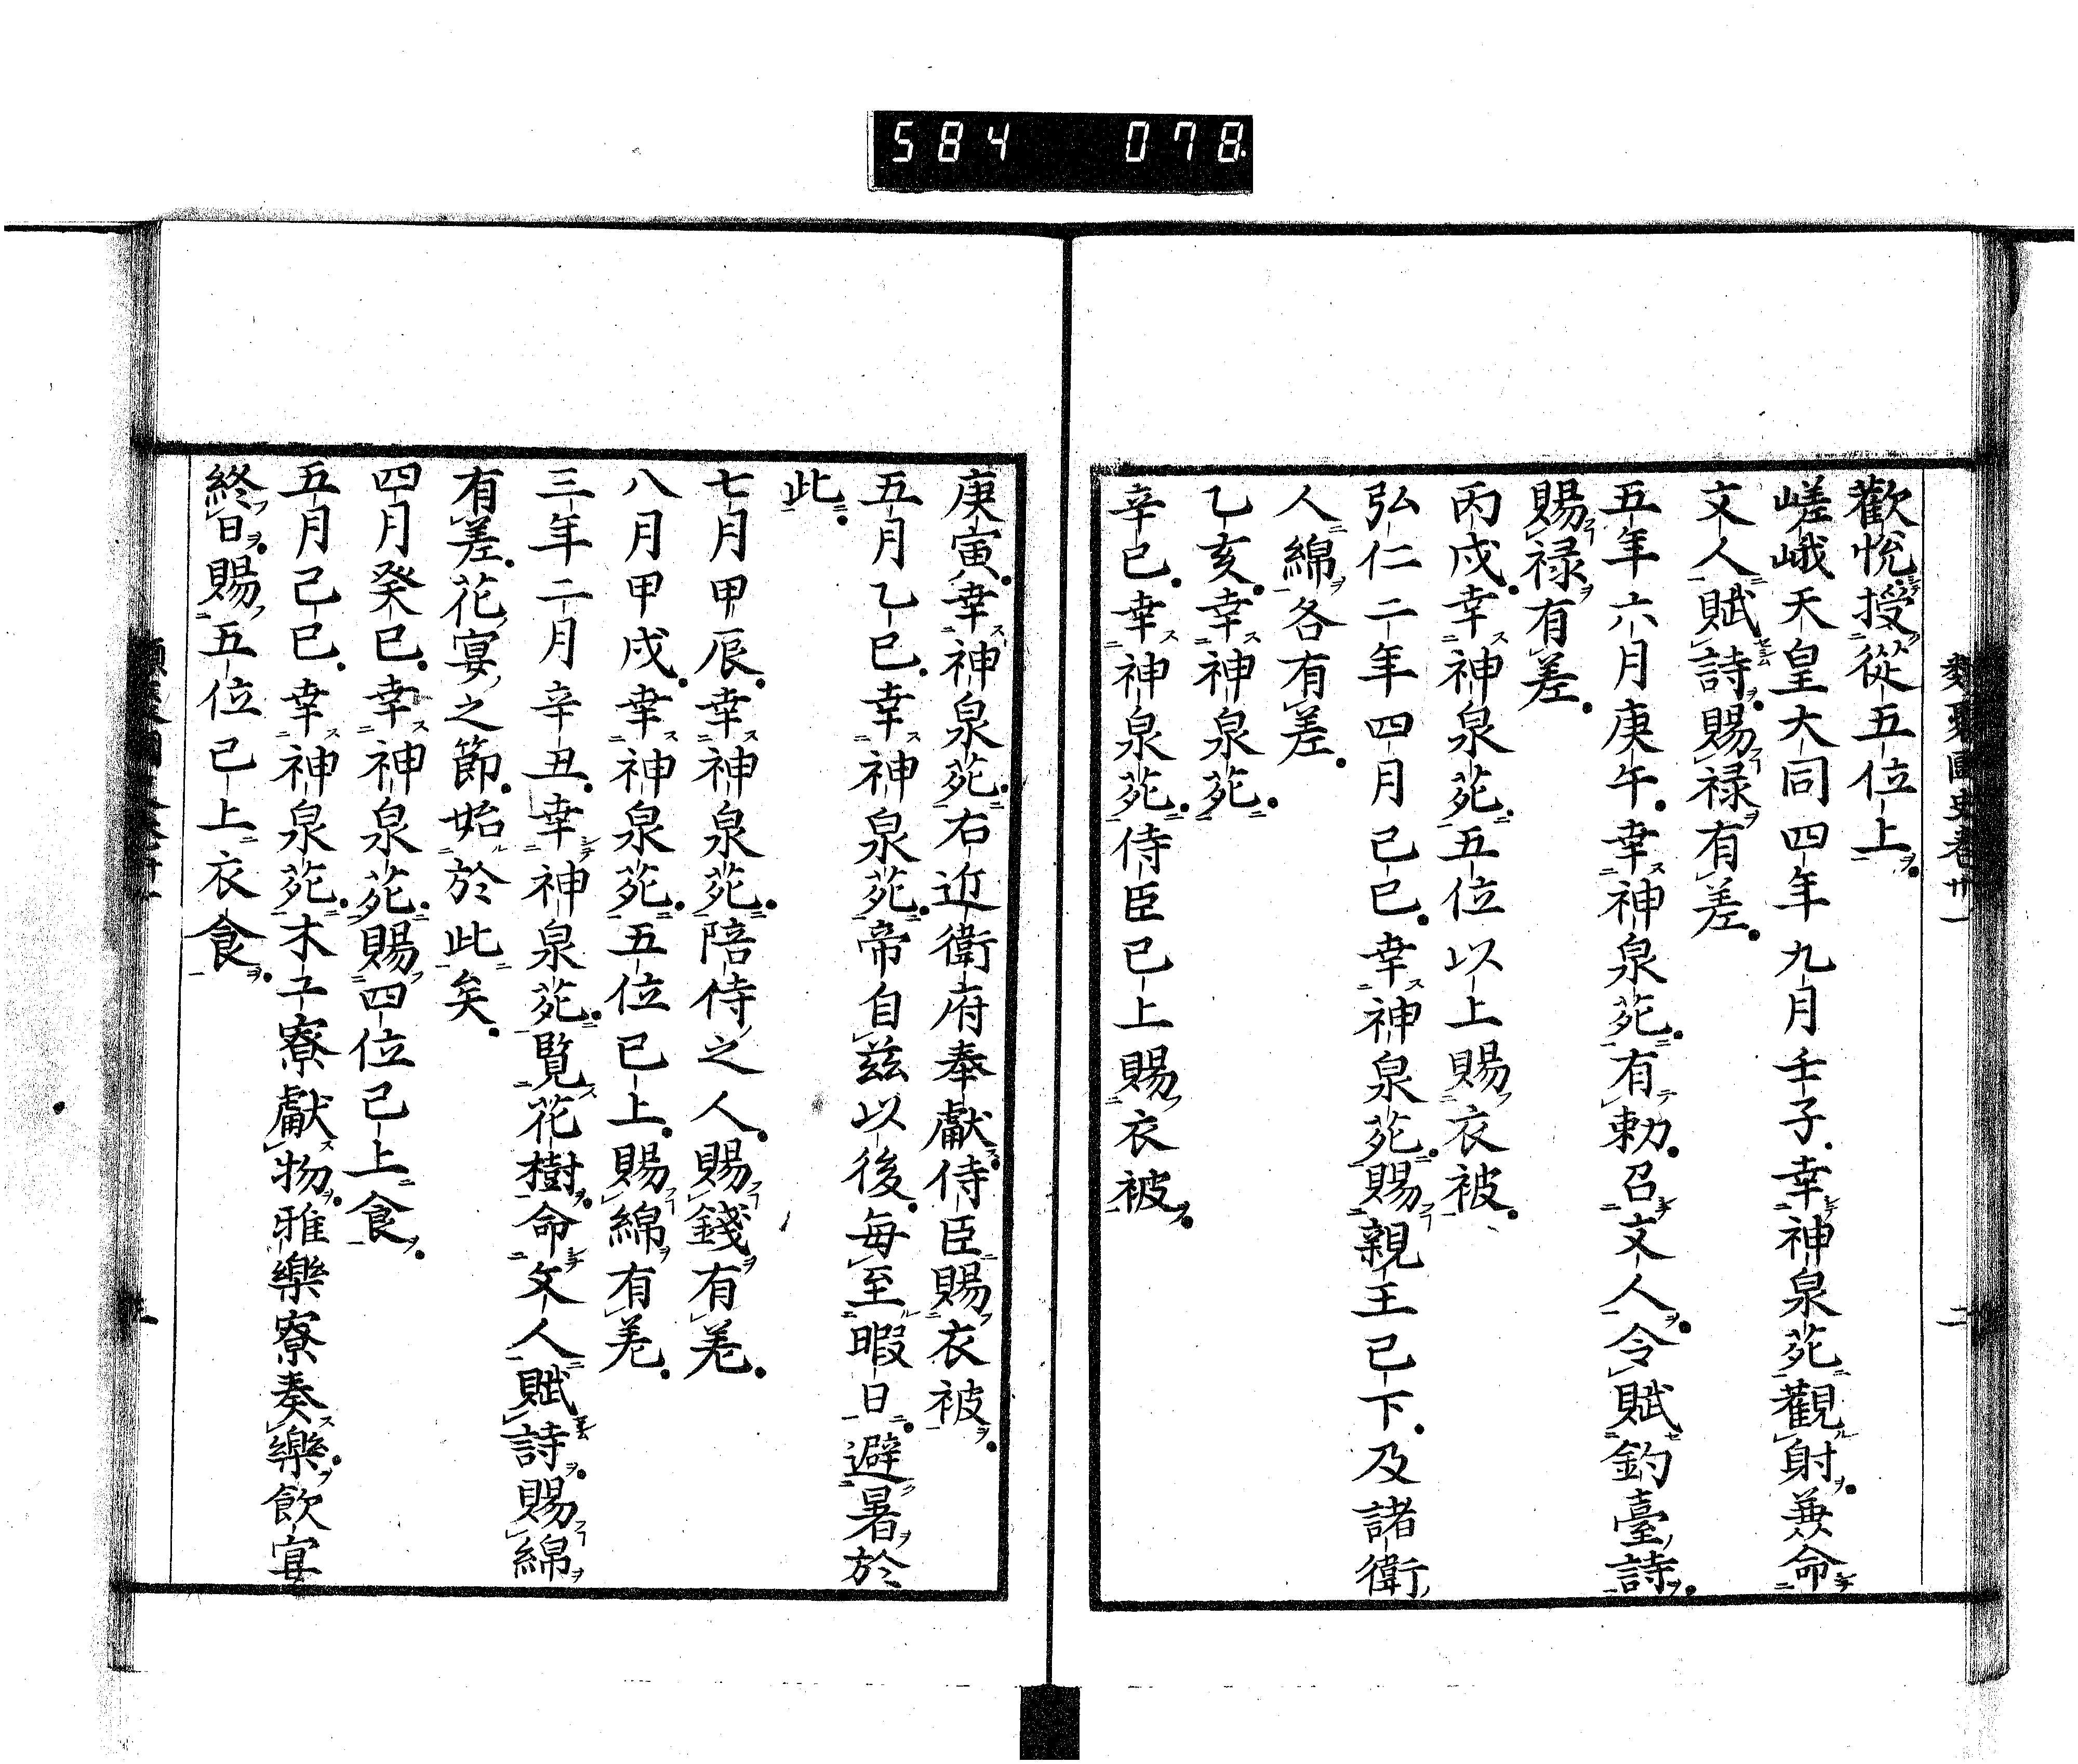 584 078
類聚國史卷卅一
二
歡悅授從五位上
嵯峨天皇大同四年九月壬子幸神泉苑觀射兼命
文人賦詩賜禄有差
五年六月庚午幸神泉苑有勅召文人令賦釣臺詩
賜禄有差
丙戌幸神泉苑五位以上賜衣被
弘仁二年四月己巳幸神泉苑賜親王已下及諸衛
人綿各有差
乙亥幸神泉苑
辛巳幸神泉苑侍臣已上賜衣被
庚寅幸神泉苑右近衛府奉獻侍臣賜衣被
五月乙巳幸神泉苑帝自茲以後每至暇日避暑於
此
七月甲辰幸神泉苑陪侍之人賜錢有差
八月甲戌幸神泉苑五位已上賜綿有差
三年二月辛丑幸神泉苑覽花樹命文人賦詩賜綿
有差花宴之節始於此矣
四月癸巳幸神泉苑賜四位已上食
五月己巳幸神泉苑木工寮獻物雅樂寮奏樂飲宴
終日賜五位已上衣食